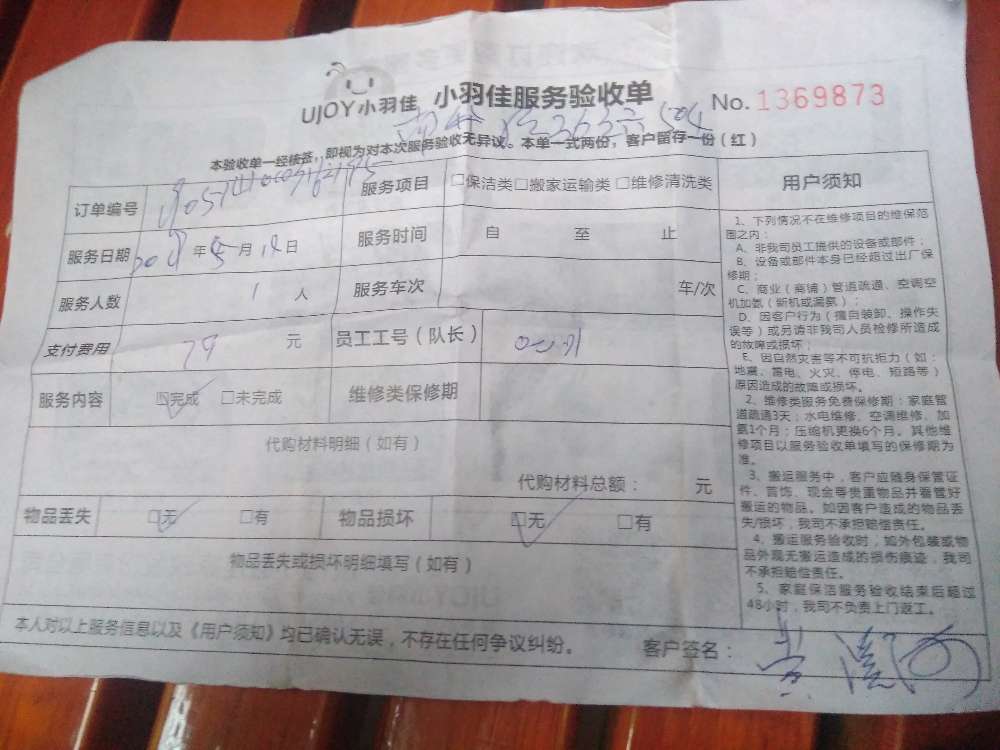 UJOY小羽佳 小羽佳服务验收单 No. 1369873
本验收单一经核签，即视为对本次服务验收无异议。本单一式两份，客户留存一份（红）
订单编号 服务项目 □保洁类□搬家运输类□维修清洗类
服务日期 年 5 月 日 服务时间 自 至 止
服务人数 1 人 服务车次 车/次
支付费用 79 元 员工工号（队长）
服务内容 □完成 □未完成 维修类保修期
代购材料明细（如有）
代购材料总额： 元
物品丢失 □无 □有 物品损坏 □无 □有
物品丢失或损坏明细填写（如有）
本人对以上服务信息以及《用户须知》均已确认无误，不存在任何争议纠纷。 客户签名：
用户须知
1、下列情况不在维修项目的维保范
围之内：
A、非我司员工提供的设备或部件；
B、设备或部件本身已经超过出厂保
修期；
C、商业（商铺）管道疏通、空调空
机加氨（新机或漏氨）；
D、因客户行为（擅自装卸、操作失
误等）或另请非我司人员检修所造成
的故障或损坏；
E、因自然灾害等不可抗拒力（如：
地震、雷电、火灾、停电、短路等）
原因造成的故障或损坏。
2、维修类服务免费保修期：家庭管
道疏通3天；水电维修、空调维修、加
氨1个月；压缩机更换6个月。其他维
修项目以服务验收单填写的保修期为
准。
3、搬运服务中，客户应随身保管证
件、首饰、现金等贵重物品并看管好
搬运的物品。如因客户造成的物品丢
失/损坏，我司不承担赔偿责任。
4、搬运服务验收时，如外包装或物
品外观无搬运造成的损伤痕迹，我司
不承担赔偿责任。
5、家庭保洁服务验收结束后超过
48小时，我司不负责上门返工。